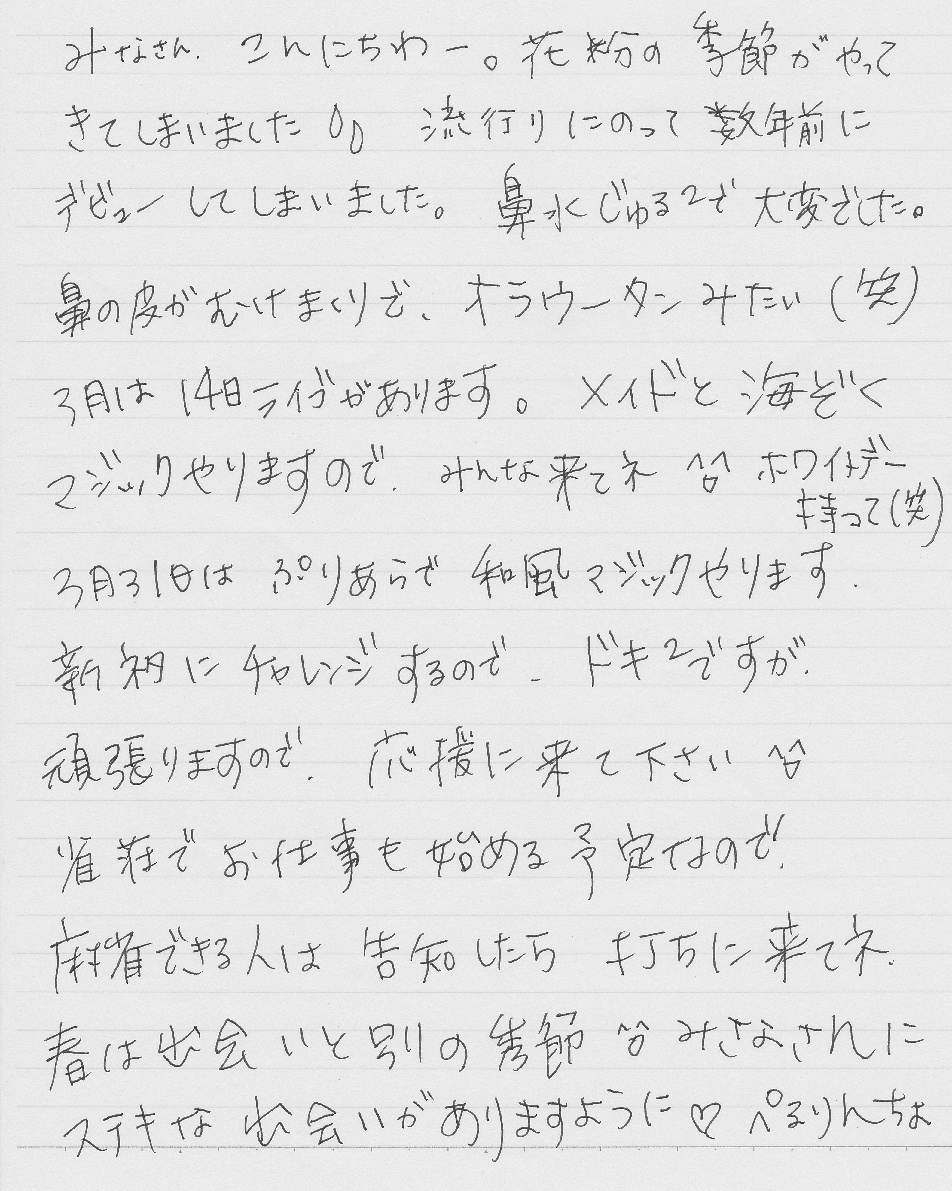 みなさん、こんにちわー。花粉の季節がやって
きてしまいました 流行りにのって数年前に
デビューしてしまいました。鼻水じゅる2で大変でした。
鼻の皮がむけまくりで、オラウータンみたい(笑)
3月は14日ライブがあります。メイドと海ぞく
マジックやりますので、みんな来てネ ^o^ ホワイトデー
持って(笑)
3月31日はぷりあらで和風マジックやります。
新ネタにチャレンジするので、ドキ2ですが、
頑張りますので、応援に来て下さい ^o^
雀荘でお仕事も始める予定なので、
麻雀できる人は告知したら打ちに来てネ。
春は出会いと別の季節 ^o^ みさなさんに
ステキな出会いがありますように♡ ぺるりんちょ